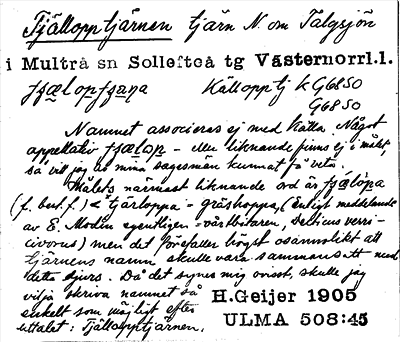 Tjälloppt̶järnen tjärn N. om Talgsjön
i Multrå sn Sollefteå tg Västernorrl.l.
Källopptj k G6850
G6850
Namnet associeras ej med källa. Något
appellativ fjælop - eller liknande finns ej i målet,
så vitt jag av mina sagesmän kunnat få veta.
Målets närmast liknande ord är fjælöpa
(f. best. f.) < tjärloppa - gräshoppa, (enligt meddelande
av E. Modin egentligen vårtbitaren, Decticus verri-
civorus) men det förefaller högst osannolikt att
tjärnens namn skulle vara sammansatt med
detta djurs. Då det synes mig ovisst, skulle jag
vilja skriva namnet så
enkelt som möjligt efter
uttalet: Tjällopptjärnen.
H.Geijer 1905
ULMA 508:45